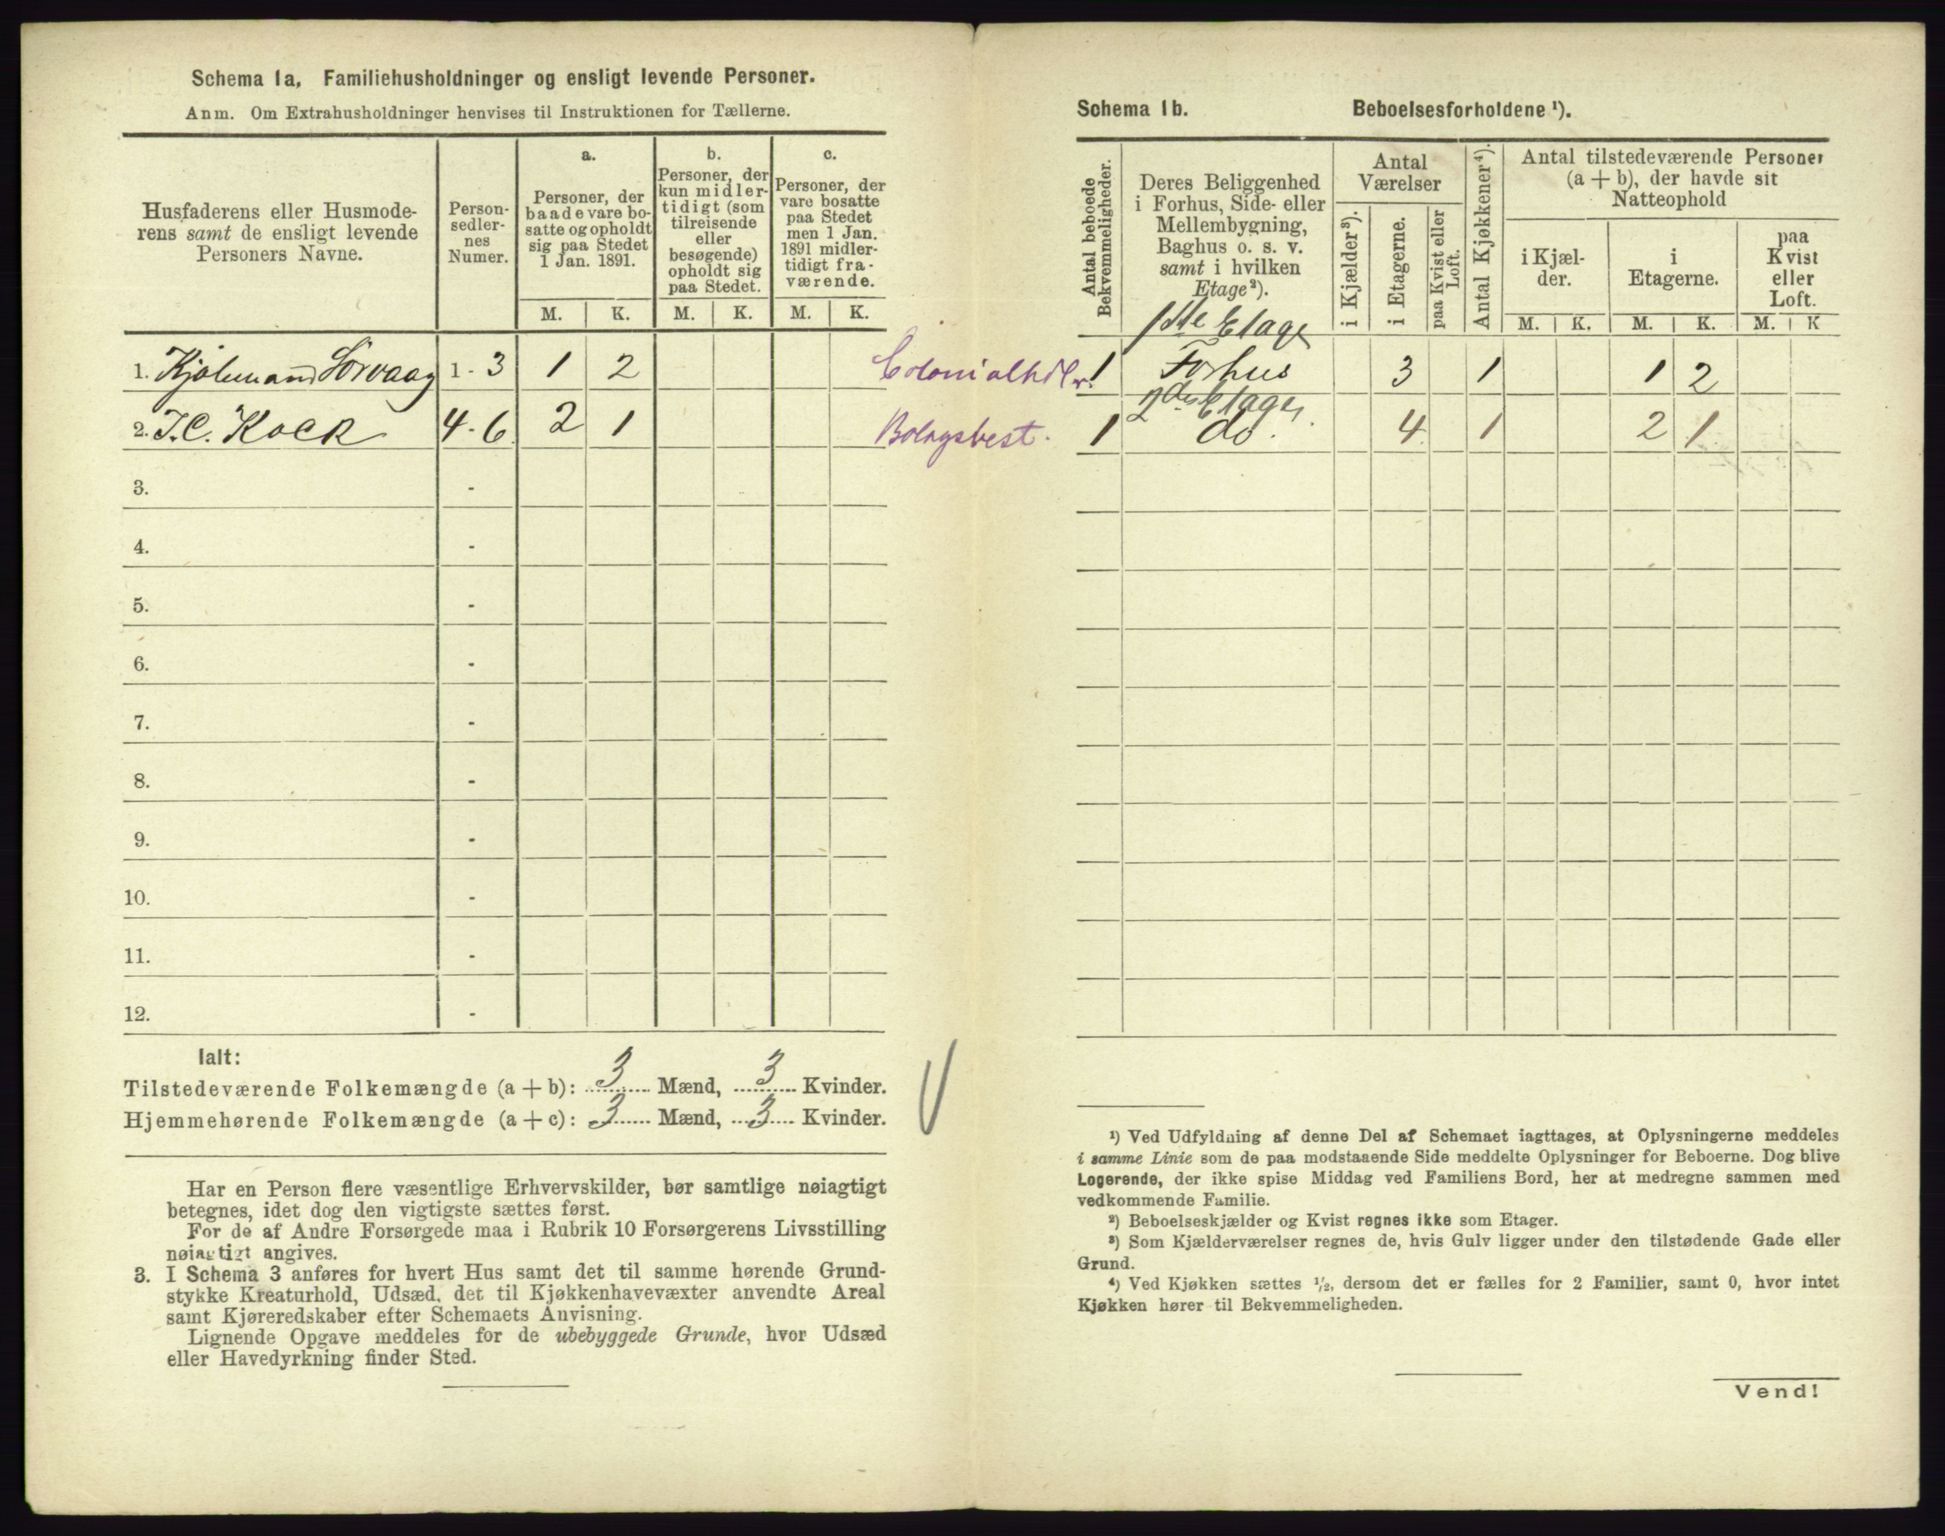 Schema 1a. Familiehusholdninger og ensligt levende Personer.
Anm. Om Extrahusholdninger henvises til Instruktionen for Tællerne.
Husfaderens eller Husmode-
rens samt de ensligt levende
Personers Navne.
Person-
sedler-
nes
Numer.
a.
Personer, der
baade vare bo-
satte og opholdt
sig paa Stedet
1 Jan. 1891.
b.
Personer, der
kun midler-
tidigt (som
tilreisende
eller
besøgende)
opholdt sig
paa Stedet.
c.
Personer, der
vare bosatte
paa Stedet
men 1 Jan.
1891 midler-
tidigt fra-
værende.
M. K. M. K. M. K.
1. Sørvaag 1 - 3 1 2 Colonialhdlr.
2. J. C. Kock 4 - 6 2 1 Bolagsbest.
3. -
4. -
5. -
6. -
7. -
8. -
9. -
10. -
11. -
12. -
Ialt:
Tilstedeværende Folkemængde (a + b): 3 Mænd, 3 Kvinder.
Hjemmehørende Folkemængde (a + c): 3 Mænd, 3 Kvinder.
Har en Person flere væsentlige Erhvervskilder, bør samtlige nøiagtigt
betegnes, idet dog den vigtigste sættes først.
For de af Andre Forsørgede maa i Rubrik 10 Forsørgerens Livsstilling
nøiagtigt angives.
3. I Schema 3 anføres for hvert Hus samt det til samme hørende Grund-
stykke Kreaturhold, Udsæd, det til Kjøkkenhavevæxter anvendte Areal
samt Kjøreredskaber efter Schemaets Anvisning.
Lignende Opgave meddeles for de ubebyggede Grunde, hvor Udsæd
eller Havedyrkning finder Sted.
Schema 1b. Beboelsesforholdene ¹).
Antal beboede
Bekvemmeligheder.
Deres Beliggenhed
i Forhus, Side- eller
Mellembygning,
Baghus o. s. v.
samt i hvilken
Etage²).
Antal
Værelser
i Kjælder³).
i Etagerne.
paa Kvist eller
Loft.
Antal Kjøkkener⁴).
Antal tilstedeværende Personer
(a + b), der havde sit
Natteophold
i Kjæl-
der.
i
Etagerne.
paa
Kvist
eller
Loft.
M. K. M. K. M. K
1ste Etage
1 Forhus 3 1 1 2
2den Etage
1 do. 4 1 2 1
¹) Ved Udfyldning af denne Del af Schemaet iagttages, at Oplysningerne meddeles
i samme Linie som de paa modstaaende Side meddelte Oplysninger for Beboerne. Dog blive
Logerende, der ikke spise Middag ved Familiens Bord, her at medregne sammen med
vedkommende Familie.
²) Beboelseskjælder og Kvist regnes ikke som Etager.
³) Som Kjælderværelser regnes de, hvis Gulv ligger under den tilstødende Gade eller
Grund.
⁴) Ved Kjøkken sættes ½, dersom det er fælles for 2 Familier, samt 0, hvor intet
Kjøkken hører til Bekvemmeligheden.
Vend!